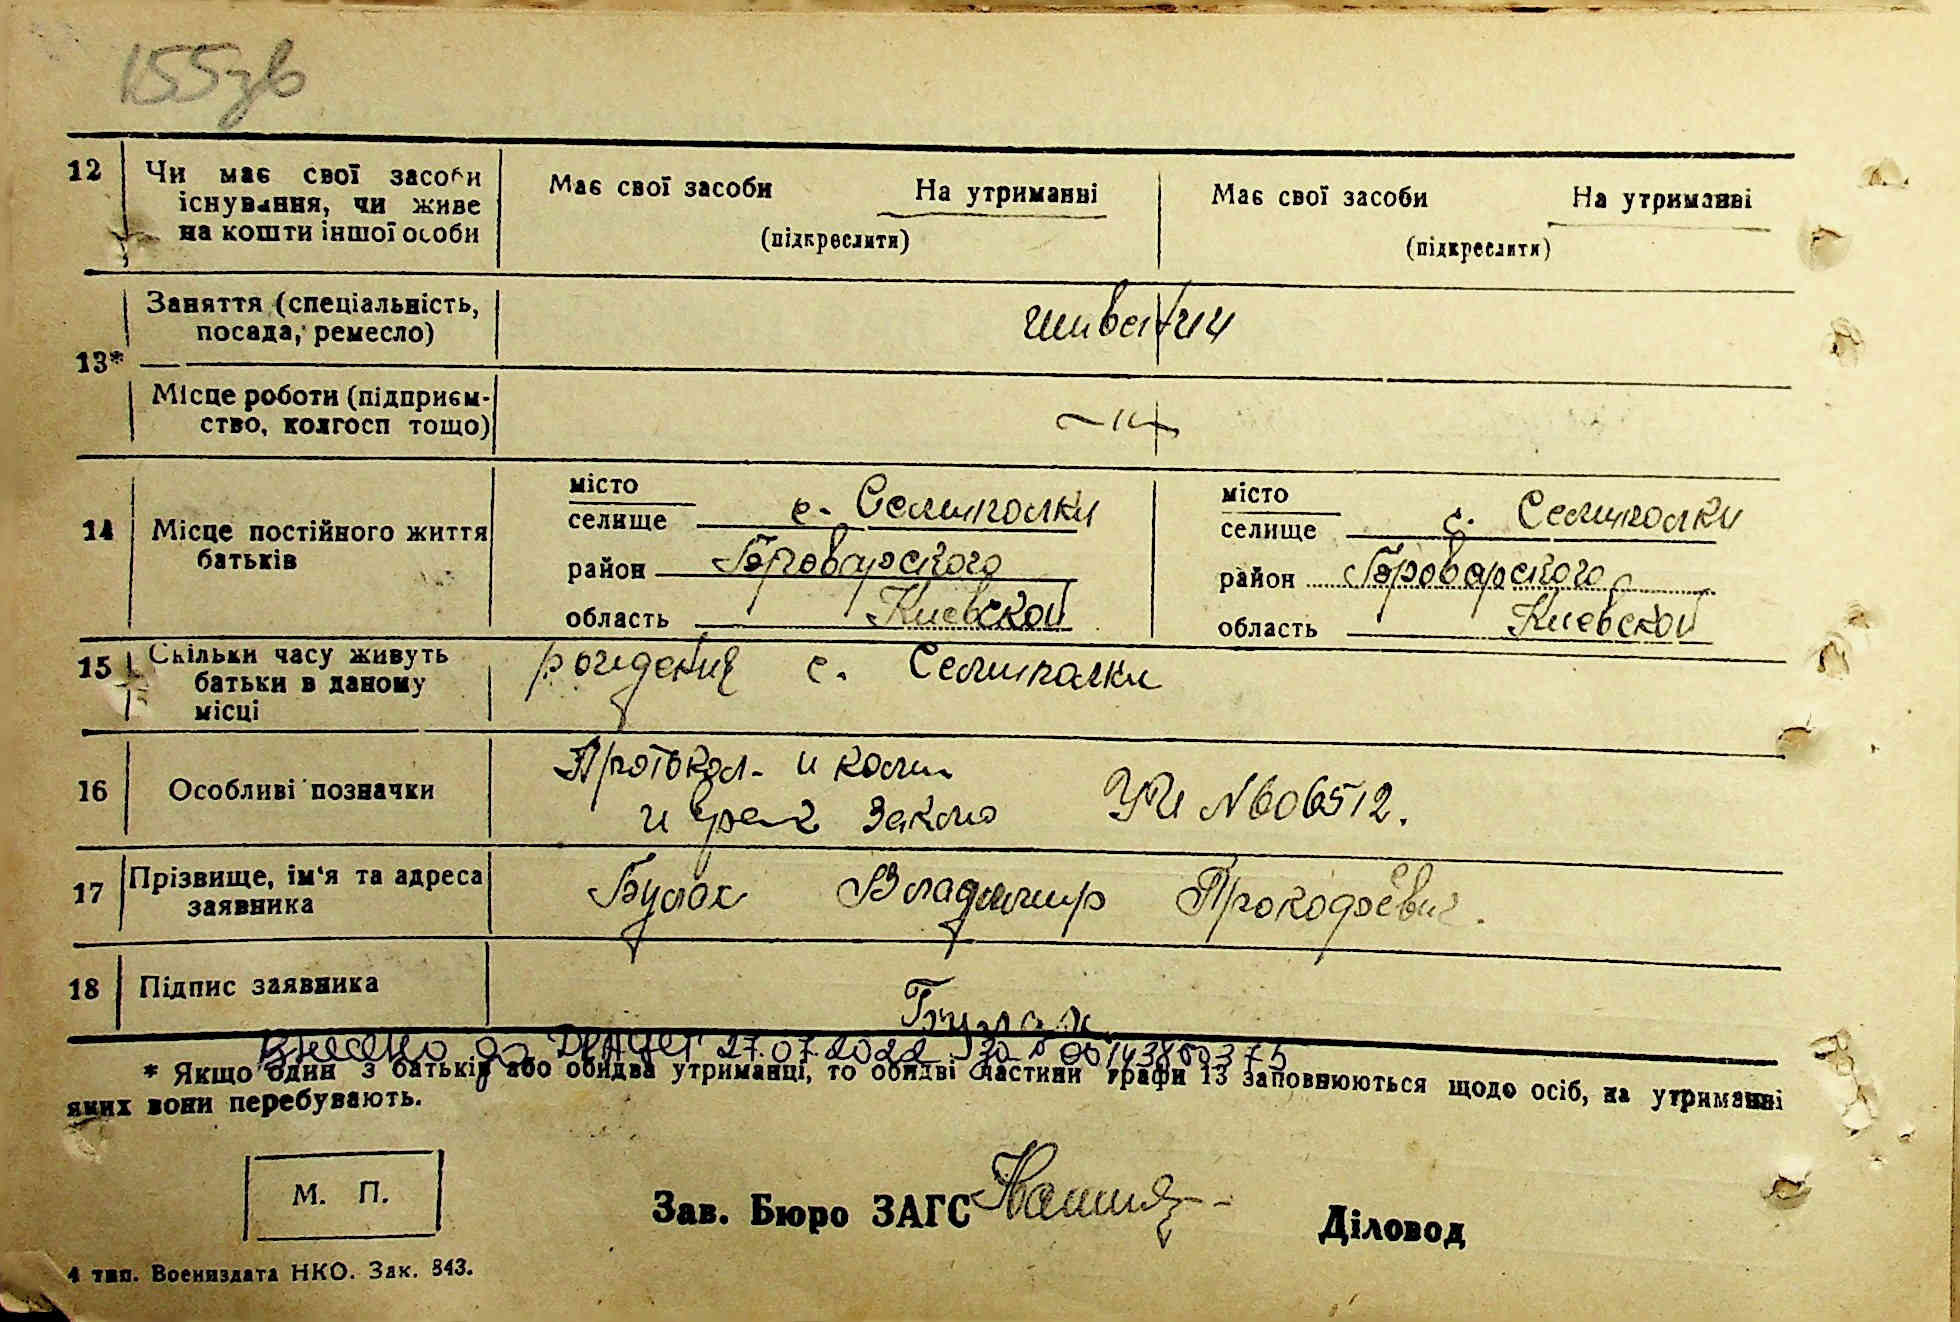 155зв
12 Чи має свої засоби існування, чи живе на кошти іншої особи
Має свої засоби На утриманні
(підкреслити)
Має свої засоби На утриманні
(підкреслити)
13*
Заняття (спеціальність, посада, ремесло)
Місце роботи (підприємство, колгосп тощо)
14 Місце постійного життя батьків
місто
селище с. Семиполки
район Броварского
область Киевской
місто
селище с. Семиполки
район Броварского
область Киевской
15 Скільки часу живуть батьки в даному місці
рождения с. Семиполки
16 Особливі позначки
УЧ №606512.
17 Прізвище, ім'я та адреса заявника
Булах Владимир Прокофьевич.
18 Підпис заявника
Булах
Внесено до ДРАЦСГ 27.07.2022 за № 00143860375
* Якщо один з батьків або обидва утриманці, то обидві частини графи 13 заповнюються щодо осіб, на утриманні
яких вони перебувають.
М. П.
Зав. Бюро ЗАГС
Діловод
4 тип. Воениздата НКО. Зак. 843.